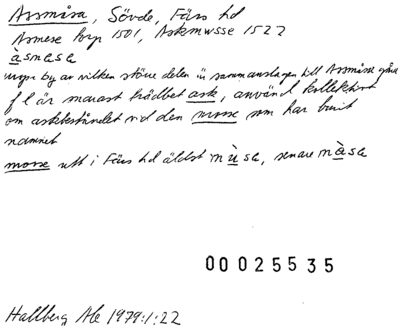 Assmåsa, Sövde, Färs hd
Asmese borp 1501, Askmwsse 1522
àsmasa
by av vilken större delen är sammanslagen till Assmåsa gård
f l är snarast trädbet ask, använd kollektivt
om askbeståndet vid den mosse som har burit
namnet
mosse utt i Färs hd äldst mùsa, senare màsa
00025535
Hallberg Ale 1979:1:22